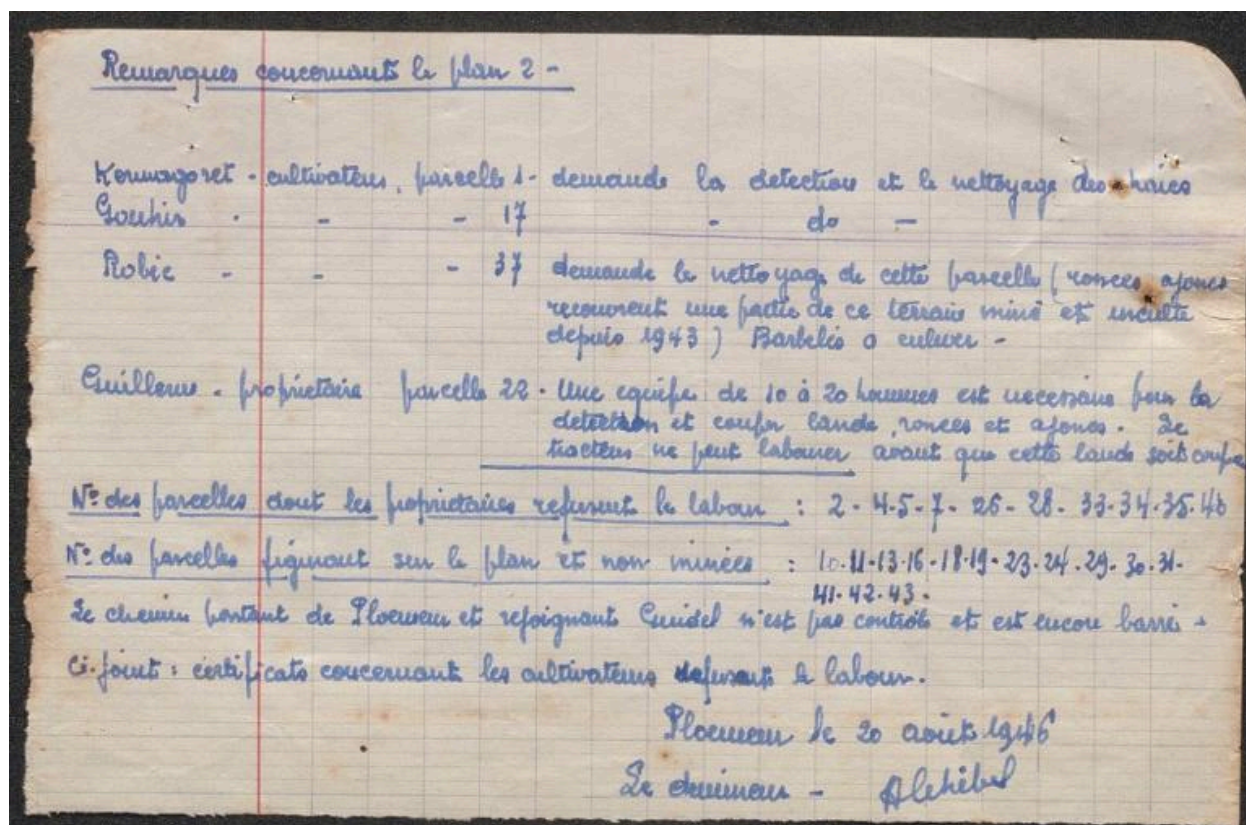 Remarques concernant le plan 2 -
Kermagoret - cultivateur, parcelle 1 - demande la detection et le nettoyage des haies
Gouhir - - - 17 - do -
Robic - - - 37 demande le nettoyage de cette parcelle (ronces ajoncs
recouvrent une partie de ce terrain miné et inculte
depuis 1943) Barbelés a enlever -
Guillerme - proprietaire parcelle 22 - Une equipe de 10 à 20 hommes est necessaire pour la
detection et couper lande, ronces et ajoncs. Le
tracteur ne peut labourer avant que cette lande soit coupée
Nº des parcelles dont les proprietaires refusent le labour : 2 - 4 - 5 - 7 - 26 - 28 - 33 - 34 - 35 - 40
Nº des parcelles figurant sur le plan et non minées : 10 - 11 - 13 - 16 - 18 - 19 - 23 - 24 - 29 - 30 - 31 -
41 - 42 - 43 -
Le chemin partant de Ploemeur et rejoignant Guidel n'est pas controlé et est encore barré -
Ci-joint : certificats concernant les cultivateurs refusant le labour.
Ploemeur le 20 août 1946
Le démineur -